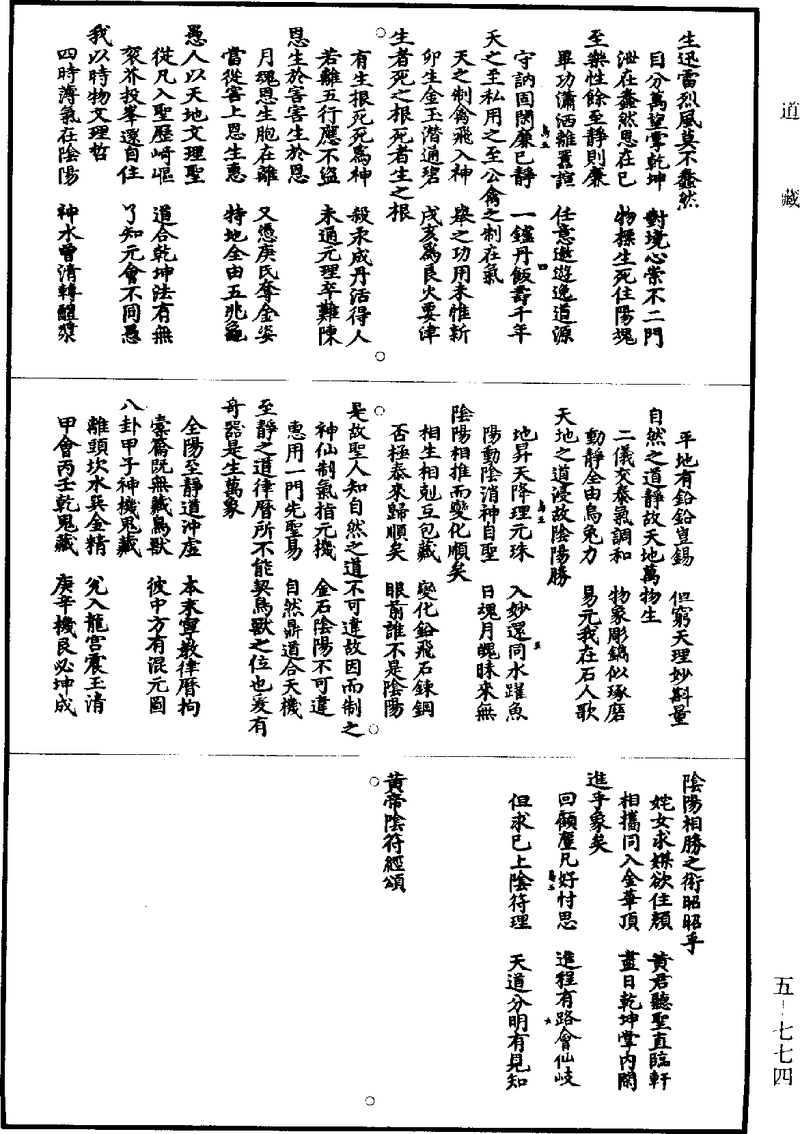 道藏
生迅雷烈風莫不蠢然
目分萬望掌乾坤　對境心崇不二門
泄在蠢然恩在已　物標生死住陽魂
至樂性餘至靜則廉
畢功瀟洒離囂諠　任意遨遊逸道源
守訥固閑廉已靜　一鑪丹飯壽千年
天之至私用之至公禽之制在氣
天之制禽飛入神　舉之功用未惟新
卯生金玉潛通碧　戌亥為艮火要津
生者死之根死者生之根
有生根死死為神　殺汞成丹活得人
若離五行應不盜　未通元理卒難陳
恩生於害害生於恩
月魂恩生胞在離　又憑庚氏奪金姿
當從害上恩生惠　特地全由五兆龜
愚人以天地文理聖
從凡入聖歷崎嶇　道合乾坤法有無
衮芥投峯還自住　了知元會不同愚
我以時物文理哲
四時薄氣在陰陽　神水曾清轉醍漿
平地有鉛鉛豈錫　但窮天理妙斟量
自然之道靜故天地萬物生
二儀交泰氣調和　物象彫鐫似琢磨
動靜全由烏兔力　易元我在石人歌
天地之道浸故陰陽勝
地昇天降理元珠　入妙還同水躍魚
陽動陰消神自聖　日魂月魄昧來無
陰陽相推而變化順矣
相生相剋互包藏　變化鉛飛石鍊鋼
否極泰來歸順矣　眼前誰不是陰陽
是故聖人知自然之道不可違故因而制之
神仙制氣指元機　金石陰陽不可違
惠用一門先聖易　自然鼎道合天機
至靜之道律曆所不能契鳥獸之位也爰有
奇器是生萬象
全陽至靜道沖虛　本來寧敎律曆拘
索籥既無藏鳥獸　彼中方有混元圖
八卦甲子神機鬼藏
離頭坎水巽金精　兊入龍宮震玉清
甲會丙壬乾鬼藏　庚辛機艮必坤成
陰陽相勝之術昭昭乎
姹女求媒欲住顏　黃君聽聖直臨軒
相攜同入金華頂　盡日乾坤掌內閑
進乎象矣
回顧塵凡好忖思　進程有路會仙岐
但求已上陰符理　天道分明有見知
黃帝陰符經頌
五-七七四